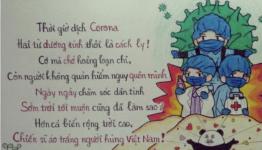 Thời giờ dịch Corona
Hai từ dương tính thôi là cách ly!
Có mà chở hoảng loạn chi,
Còn người không quản hiểm nguy quên mình
Ngày ngày chăm sóc dân tình
Sớm trời tối muộn cũng đã làm sao
Hơn cả biển rộng trời cao,
Chiến sĩ áo trắng người hùng Việt Nam!